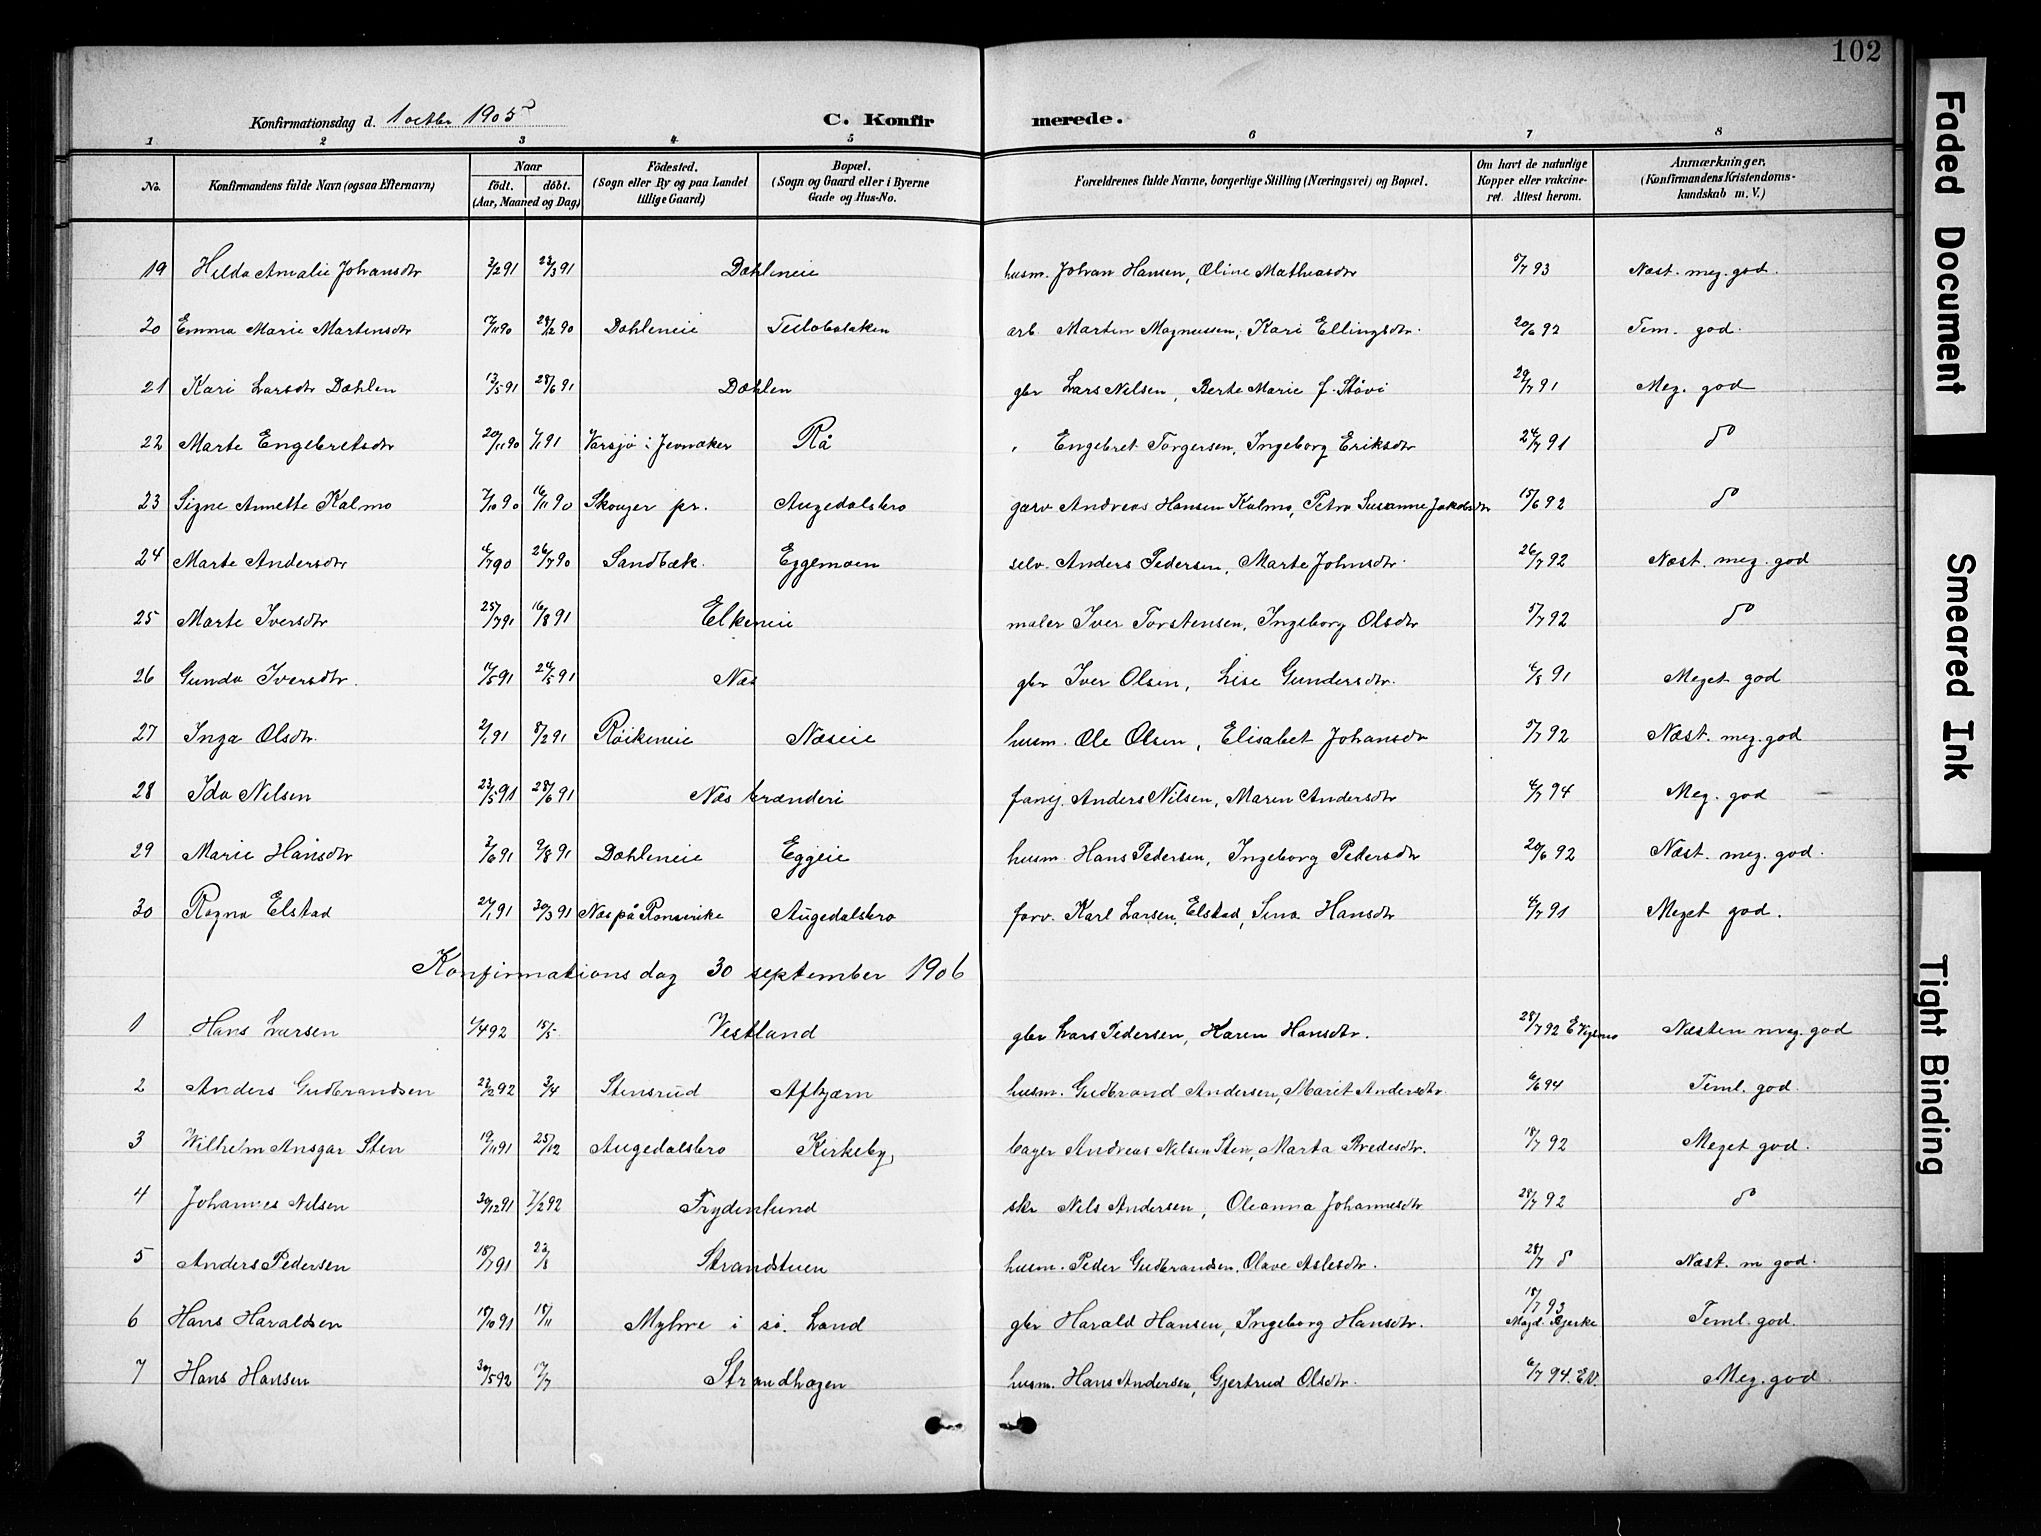 102
Konfirmationsdag d. 1 octbr 1905
C. Konfirmerede.
1 2 3 4 5 6 7 8
No. Konfirmandens fulde Navn (ogsaa Efternavn) Naar födt. döbt. (Aar, Maaned og Dag) Födested. (Sogn eller By og paa Landet tillige Gaard) Bopæl. (Sogn og Gaard eller i Byerne Gade og Hus-No. Forældrenes fulde Navne, borgerlige Stilling (Næringsvei) og Bopæl. Om havt de naturlige Kopper eller vakcineret. Attest herom. Anmærkninger. (Konfirmandens Kristendomskundskab m. V.)
19 Hilda Amalie Johansdtr 3/2 91 23/3 91 Dæhleneie husm. Johan Hansen, Oline Mathiasdtr 5/7 93 Næst. meg. god.
20 Emma Marie Martensdtr 29/12 90 Dæhleneie arb Marten Magnussen, Kari Ellingsdtr. 20/6 92 Tem. god.
21 Kari Larsdtr Dæhlen 13/5 91 28/6 91 Dæhlen gbr Lars Nilsen, Berte Marie f. Støvi 29/7 91 Meg. god
22 Marte Engebretsdtr 20/11 90 1/1 91 Varsjø i Jevnaker Rå " Engebret Torgersen, Ingeborg Eriksdtr 24/7 91 do
23 Signe Annette Kalmo 7/10 90 16/11 90 Skouger pr. Augedalsbro garv Andreas Hansen Kalmo, Petra Susanne Jakobsdtr 15/6 92 do
24 Marte Andersdtr 6/7 90 26/7 90 Sandbæk. Eggemoen selv. Anders Pedersen, Marte Johnsdtr. 26/7 92 Næst. meg. god
25 Marte Iversdtr 25/7 91 16/8 91 Elkeneie maler Iver Torstensen, Ingeborg Olsdtr 5/7 92 do
26 Gunda Iversdtr. 24/5 91 Næs gbr Iver Olsen, Lise Gundersdtr. 4/8 91 Meget god
27 Inga Olsdtr. 2/1 91 8/2 91 Røikeneie Næseie husm. Ole Olsen, Elisabet Johansdtr 5/7 92 Næst. meg. god
28 Ida Nilsen 23/5 91 28/6 91 Næs brænderi Anders Nilsen, Maren Andersdtr 4/7 94 Meg. god
29 Marie Hansdtr 3/6 91 9/8 91 Dæhleneie Eggeie husm. Hans Pedersen, Ingeborg Pedersdtr 20/6 92 Næst. meg. god.
30 Ragna Elstad 27/1 91 30/3 91 Næs på Romerike Augedalsbro farv. Karl Larsen Elstad, Sina Hansdtr 4/7 91 Meget god.
Konfirmationsdag 30 september 1906
1 Hans Larsen 4/4 92 15/5 - Vestland gbr Lars Pedersen, Karen Hansdtr. 28/7 92 Næsten meg. god
2 Anders Gudbrandsen 22/2 92 3/4 Stensrud Afkjærn husm. Gudbrand Andersen, Marit Andersdtr. 6/6 94 Teml. god.
3 Wilhelm Ansgar Sten 19/11 91 25/12 Augedalsbro Kirkeby bager Andreas Nilsen Sten, Marta Bredesdtr. 18/7 92 Meget god.
4 Johannes Nilsen 30/12 91 7/2 92 Frydenlund skr Nils Andersen, Oleanna Johannesdtr 28/7 92 do
5 Anders Pedersen 18/7 91 23/8 Strandstuen husm. Peder Gudbrandsen, Olave Aslesdtr. 28/7 d Næst. m god.
6 Hans Haraldsen 18/10 91 15/11 Myhre i sö. Land gbr Harald Hansen, Ingeborg Hansdtr. 18/7 93 Magd. Bjerke Teml. god.
7 Hans Hansen 30/5 92 17/7 Strandhagen husm. Hans Andersen, Gjertrud Olsdtr. 6/7 94. E.V. Meg. god
Faded Document
Smeared Ink
Tight Binding